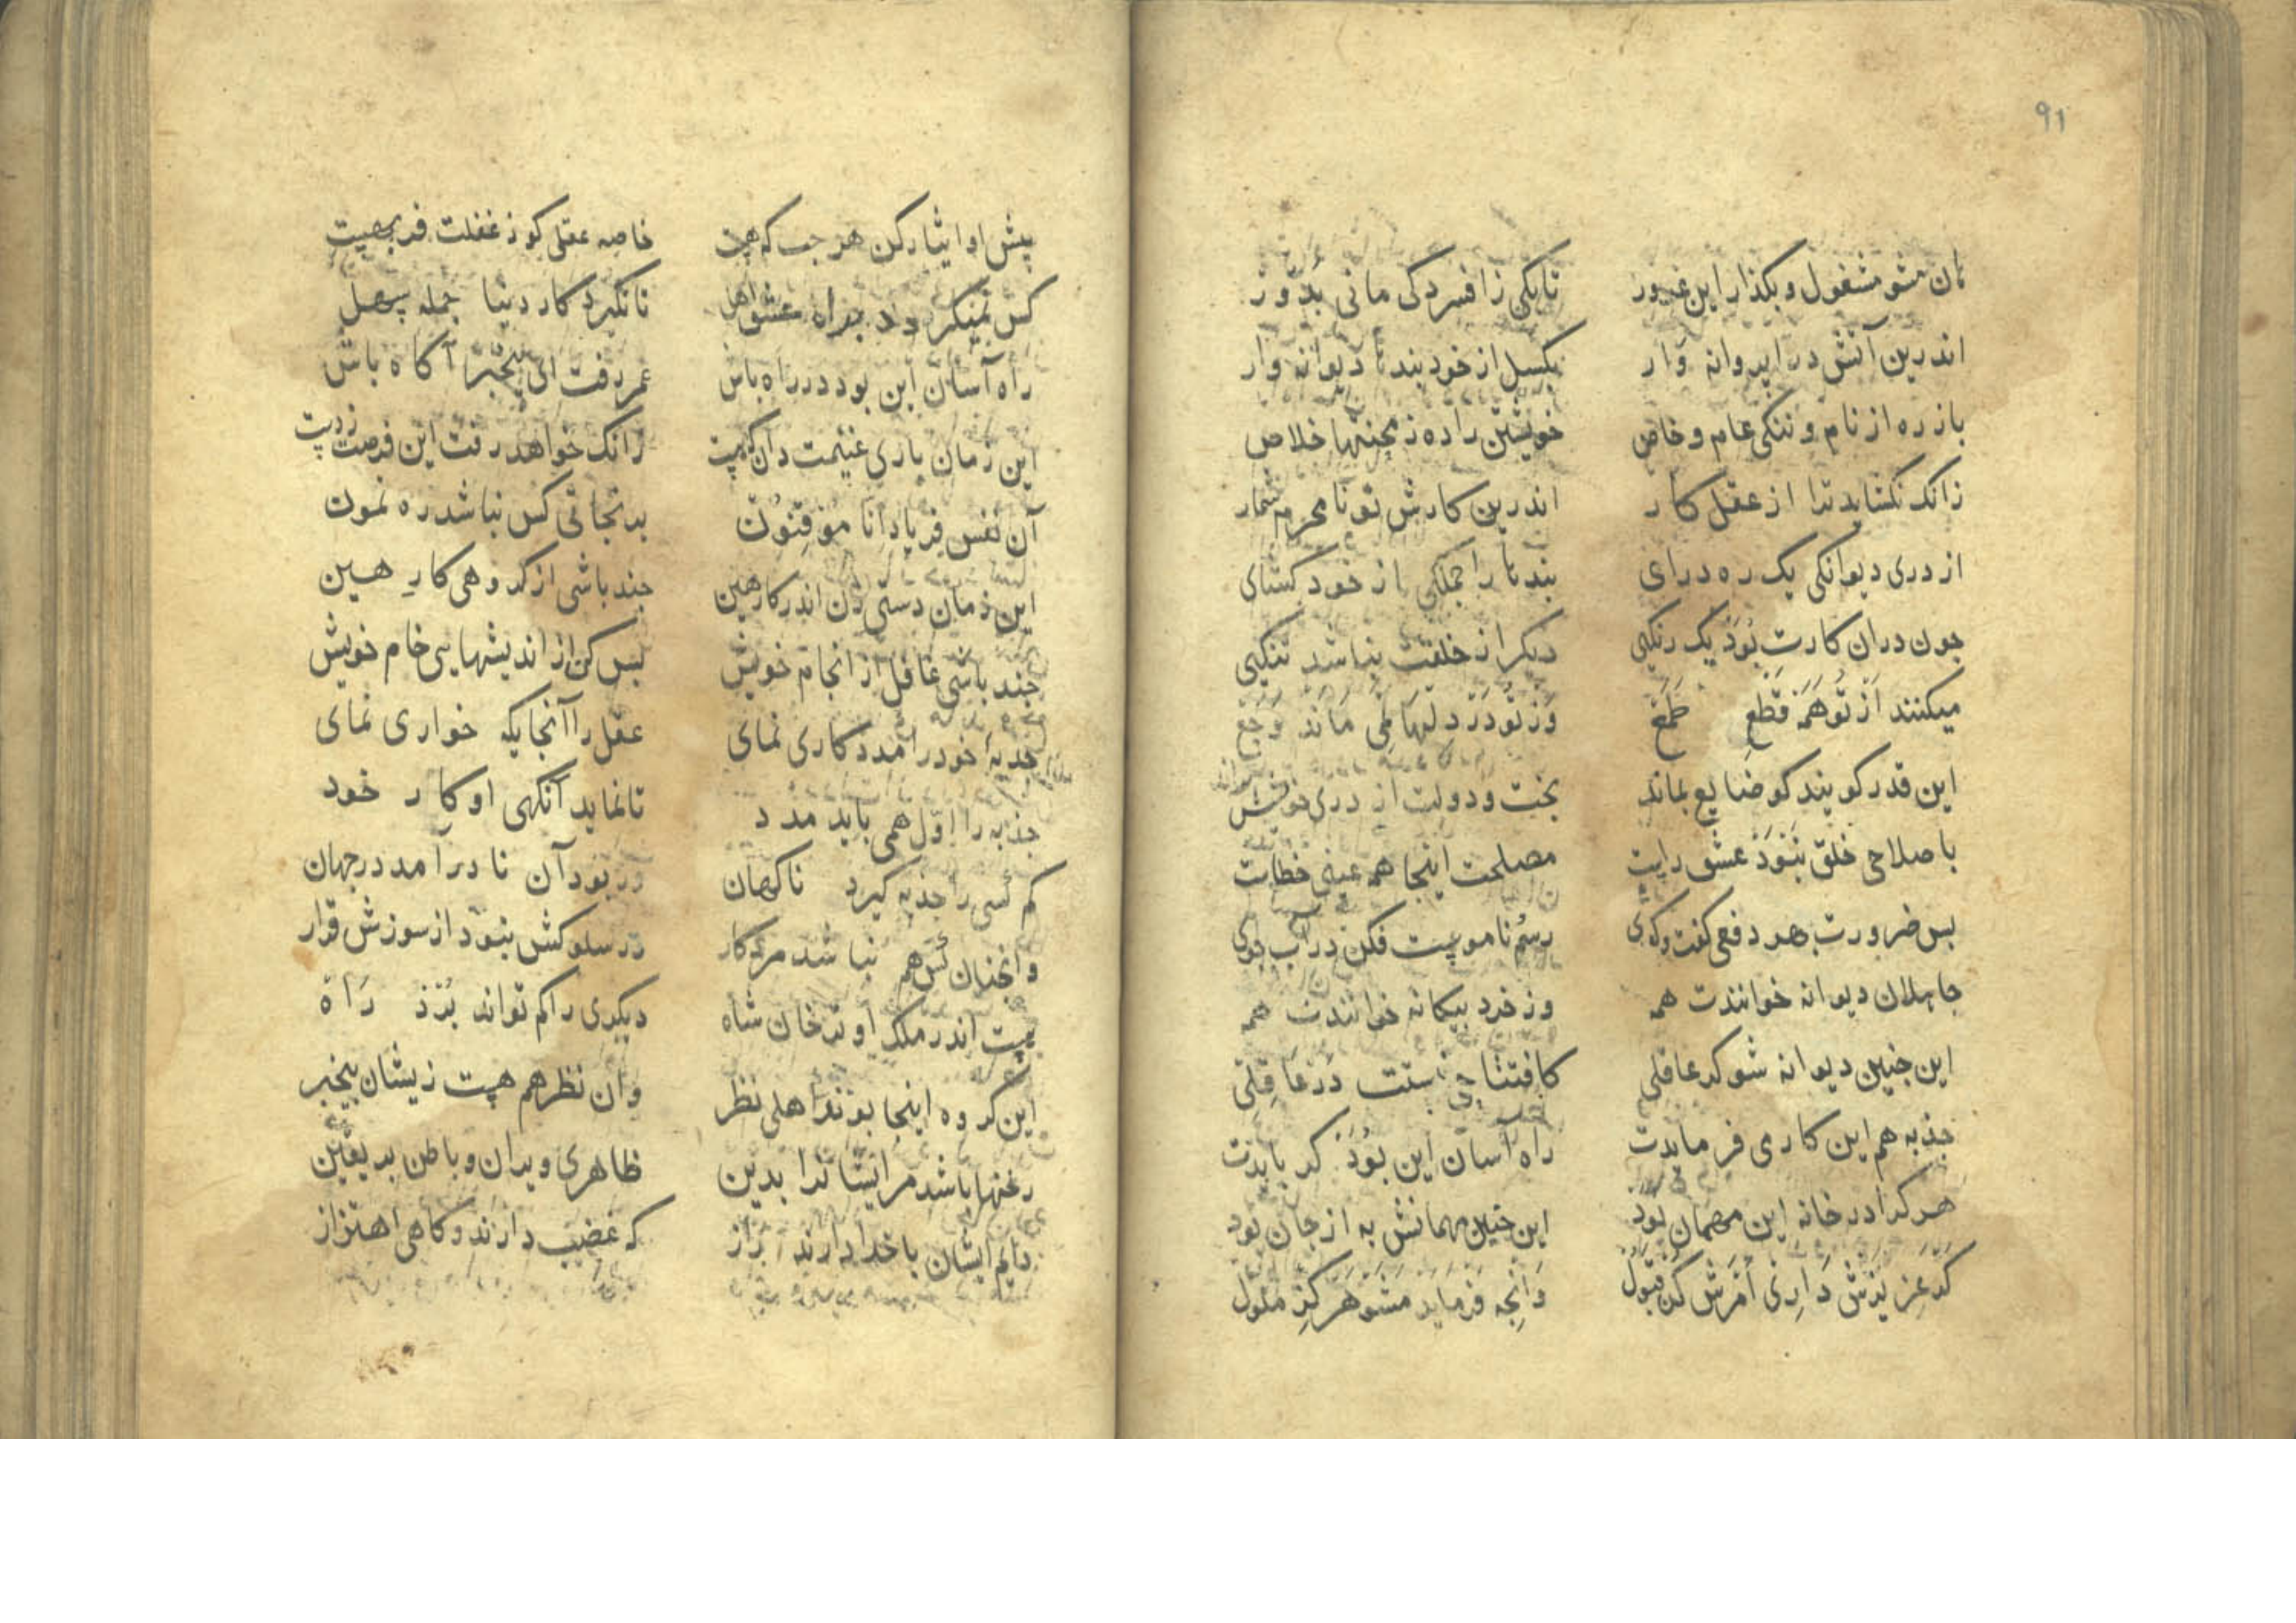 ۹۱
هان مشو مشغول وبکذار این غرور تابکی زافسردکی مانی بدور
اندرین آتش درا پروانه وار بکسل از خود بندها دیوانه وار
باز ره از نام وننکی عام وخاص خویشتن را ده زمحنتها خلاص
زانک نکشاید ترا از عقل کار اندرین کارش تو نامحرم شمار
از دری دیوانکی یک ره درای بندها را جملکی از خود کشای
جون دران کارت بود یک رنکیی دیکر از خلقت نباشد ننکیی
میکنند از تو همه قطع طمع وز تو در دلها نمی ماند وجع
این قدر کویند کو ضایع بماند بخت ودولت از دری خویش
با صلاح خلق نبود عشق راست مصلحت اینجا همه عین خطاست
بس ضرورت هر دفعی کفت وکوی رسم ناموست فکن در آب جوی
جاهلان دیوانه خوانندت همه وز خرد بیکانه خوانندت همه
این جنین دیوانه شو کر عاقلی کافتنا جی است در عاقلی
جذبه هم این کار می فرمایدت راه آسان این بود کر بایدت
هر کرا در خانه این مهمان بود این جنین مهمانش به از جان بود
کر عزیزش داری امرش کن قبول وانجه فرماید مشو هرکز ملول
پیش او ایثار کن هر جت که هست خاصه عقلی کو ز غفلت فربهست
کس نمیکردد براه عشق اهل تا نکیرد کار دنیا جمله سهل
راه آسان این بود در راه باش عمر رفت ای بیخبر آکاه باش
این زمان باری غنیمت دان که هست زانک خواهد رفت این فرصت زدست
آن نفس فریاد انا موقنون بد بجائی کس نباشد ره نمون
این زمان دستی زن اندر کار هین جند باشی از کروهی کار هین
جند باشی غافل از انجام خویش بس کن از اندیشهایی خام خویش
جذبهٔ خود را مددکاری نمای عقل را آنجایکه خواری نمای
جذبه را اول همی باید مدد تا نماید آنکهی او کار خود
کم کسی را جذبه کیرد ناکهان ور بود آن نادر آمد در جهان
وانجنان کس هم نباشد مرد کار در سلوکش نبود از سوزش قرار
نیست اندر ملک او ترخان شاه دیکری را کم تواند برد راه
این کروه اینجا بوند اهلی نظر وان نظر هم هست زیشان بیخبر
رغنها باشد مر ایشانرا بدین ظاهری ویران وباطن بر یقین
دایم ایشان با خدا دارند راز که غضب دارند وکاهی اهتزاز